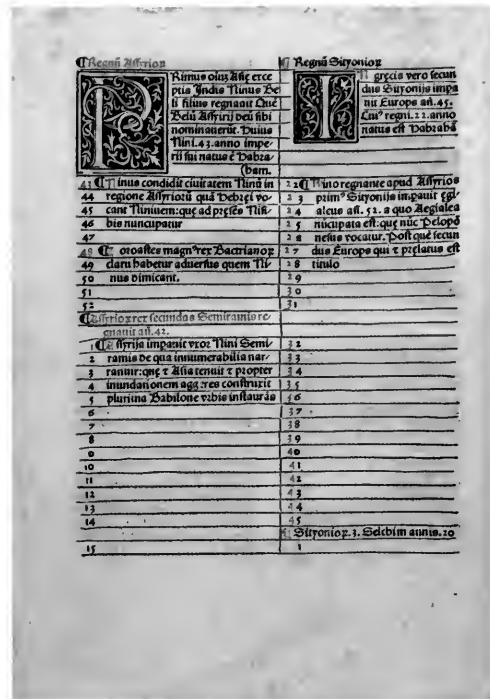 ¶ Regnū Assyrioꝝ
PRimus oīuȝ Asię exce
ptis Indis Ninus Be
li filius regnauit Quē
Belū Assyrij deū sibi
nominauerūt. Huius
Nini .43. anno impe-
rii sui natus ē Habra-
(ham.
43 ¶ Ninus condidit ciuitatem Ninū in
44 regione Assyrioꝝ quā Hebręi vo-
45 cant Niniuem: que ad pręsēs Nisi-
46 bis nuncupatur
47
48 ¶ oroastes magnꝰ rex Bactrianoꝝ
49 clarꝰ habetur aduersus quem Ni-
50 nus dimicant.
51
52
¶ Assyrioꝝ rex secundas Semiramis re-
gnauit añ. 42.
1 ¶ Assyrijs imperauit vxor Nini Semi-
2 ramis de qua innumerabilia nar-
3 rantur: quę ⁊ Asia tenuit ⁊ propter
4 inundationem aggeres construxit
5 plurima Babilone vrbis instaurās
6
7
8
9
10
11
12
13
14
15
¶ Regnū Sicyonioꝝ
IN grecia vero secun
dus Sicyonijs impa
uit Europs añ. 45.
Cuiꝰ regni .22. anno
natus est Habrahā
22 ¶ Nino regnante apud Assyrios
23 primꝰ Sicyonijs inpauit Ęgi
24 aleus añ. 52. a quo Aegialea
25 nūcupata est: que nūc Pelopō
26 nesus vocatur. Post quē secun
27 dus Europs qui ⁊ prelatus est
28 titulo
29
30
31
32
33
34
35
36
37
38
39
40
41
42
43
44
45
¶ Sicyonioꝝ .3. Selchim annis. 20
1